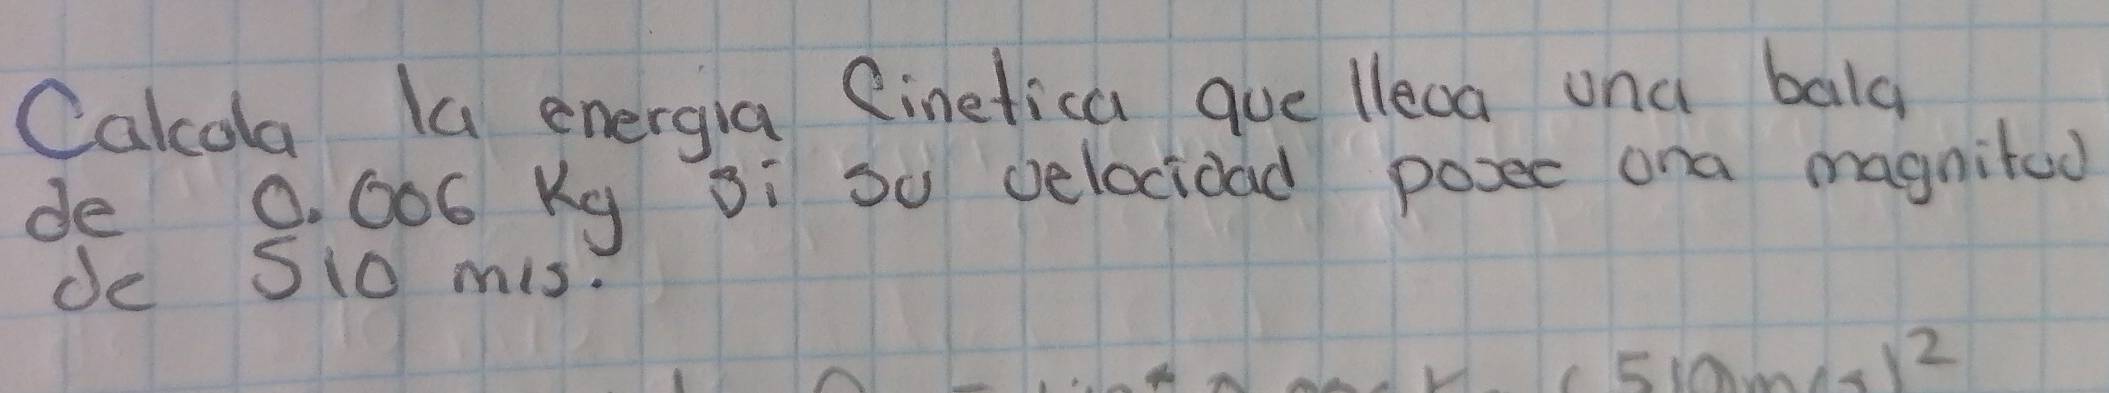 Calcula la energia Cinetica que lleva una bala
de 0.006 Kg si su velocidad posee una magnitud
de 510 m/s.
(510m/s)²